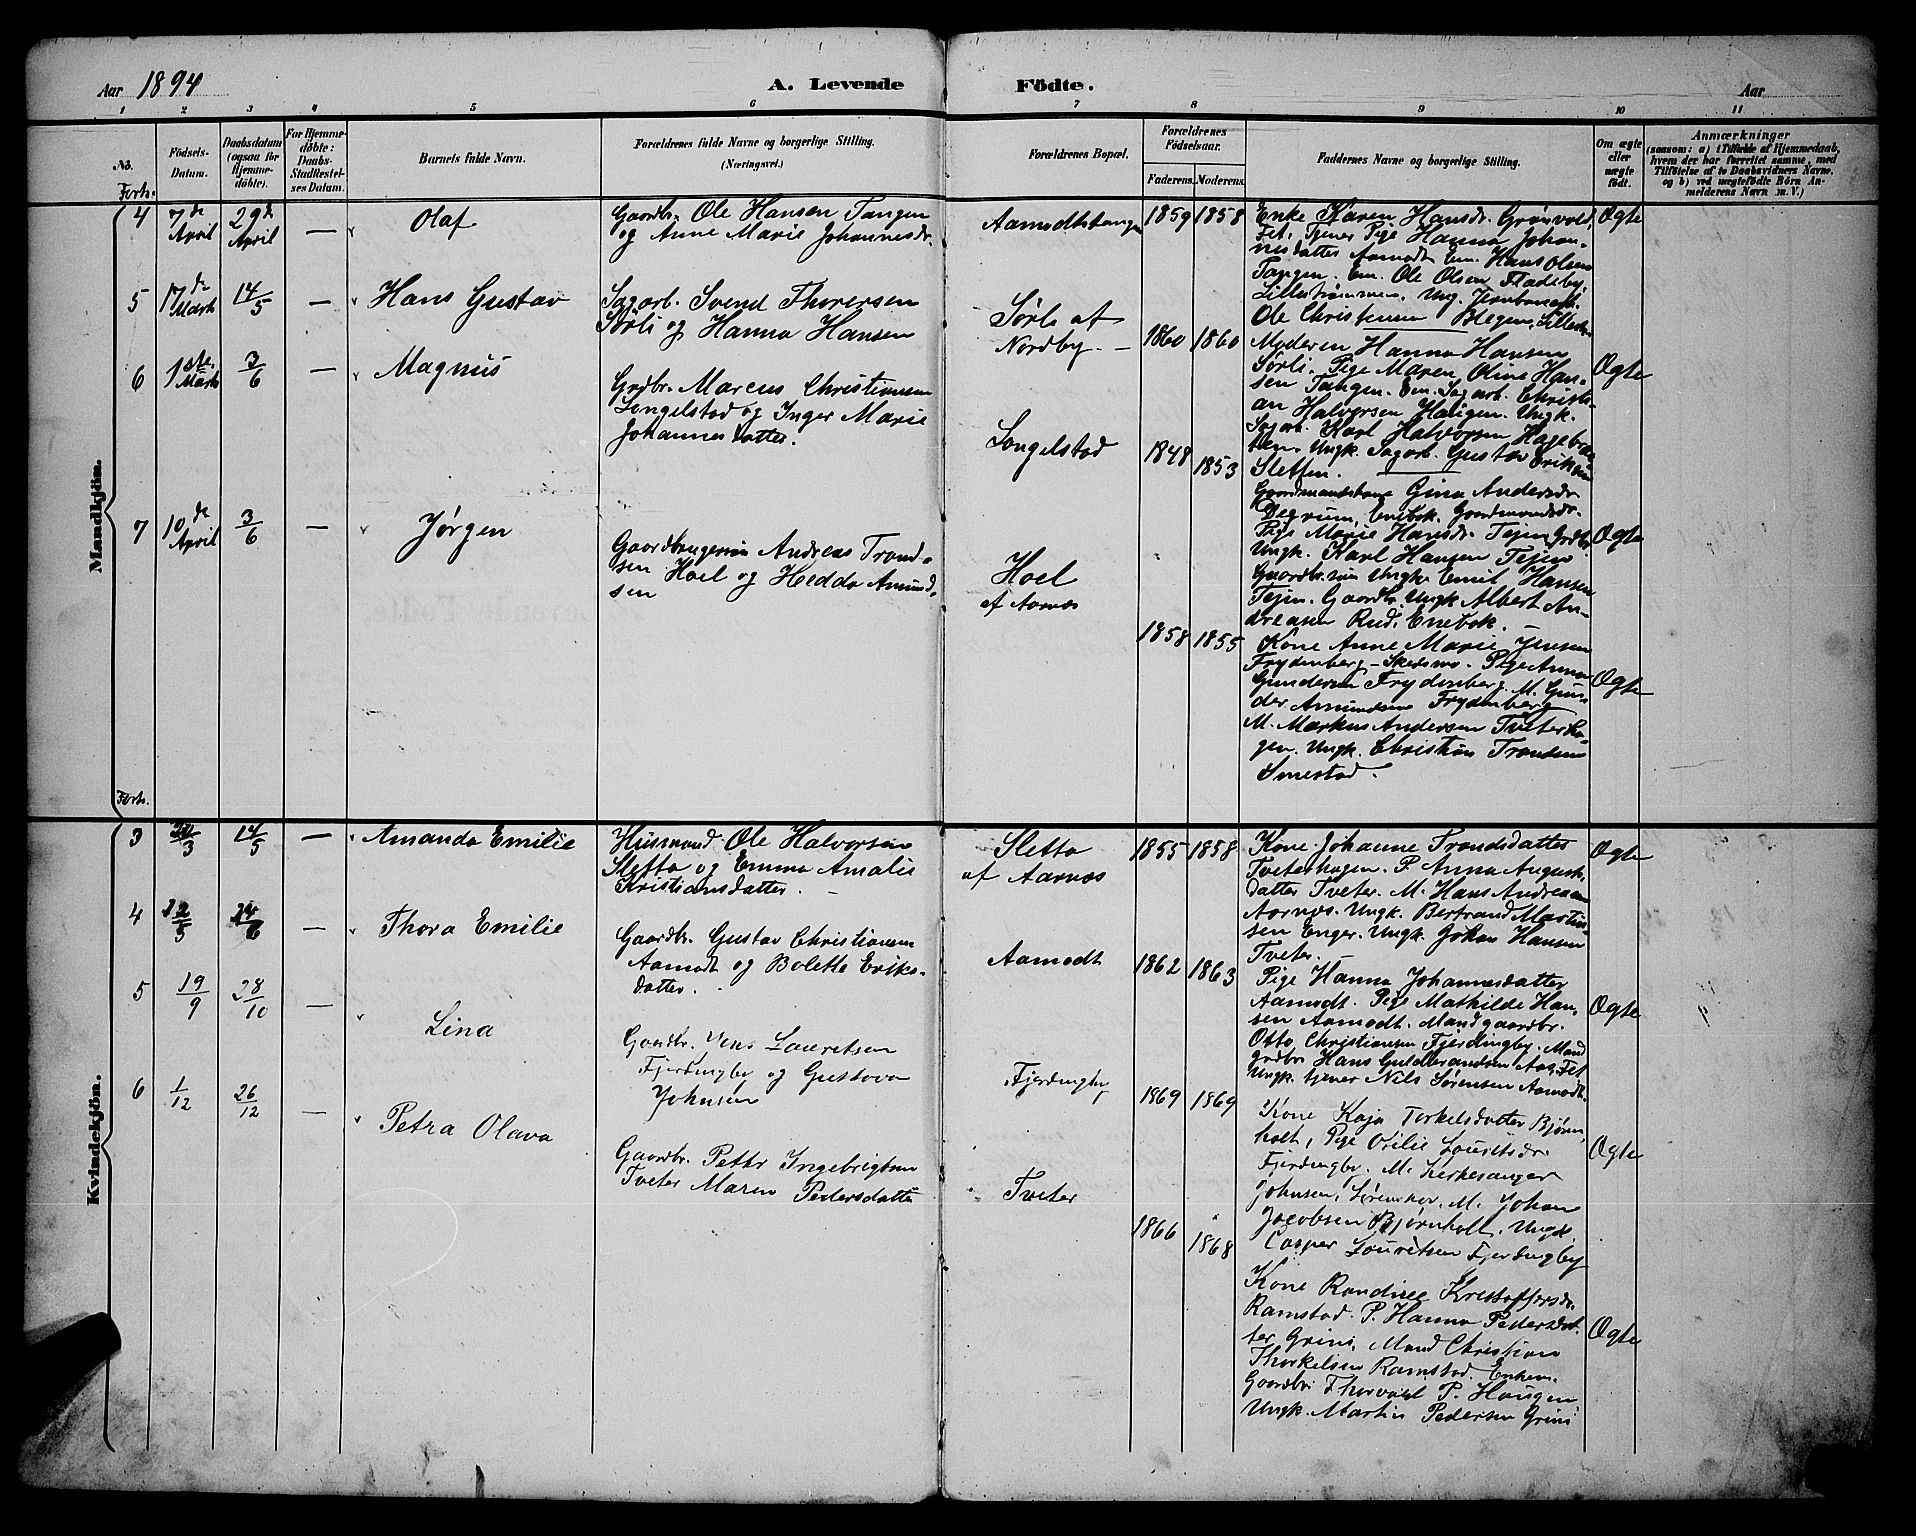 Aar 1894 A. Levende Födte. Aar
1 2 3 4 5 6 7 8 9 10 11
No. Födsels-Datum. Daabsdatum (ogsaa for Hjemmedöbte). For Hjemmedöbte: Daabs-Stadfæstelses Datum. Barnets fulde Navn. Forældrenes fulde Navne og borgerlige Stilling. (Næringsvei.) Forældrenes Bopæl. Forældrenes Födselsaar. Faderens. Moderens. Faddernes Navne og borgerlige Stilling. Om ægte eller uægte födt. Anmærkninger
(saasom: a) i Tilfælde af Hjemmedaab, hvem der har forrettet samme, med Tilföielse af to Daabsvidners Navne, og b) ved uægtefödte Börn Anmelderens Navn m. V.)
Mandkjön.
Forts.
4 7de April 29de April — Olaf
Gaardbr. Ole Hansen Tangen
og Anne Marie Johannesdr.
Aamodtstangen 1859 1858
Enke Karen Hansdr. Grønvold,
Fet, Tjener Pige Hanna Johan-
nesdatter Aamodt Em. Hans Olsen
Tangen. Em. Ole Olsen Fladeby,
Lillestrømmen. Ung.
Ole Christensen
Ægte
5 17de Marts 14/5 — Hans Gustav
Sagarb. Svend Thoresen
Sørli og Hanna Hansen
Sørli af
Nordby. — 1860 1860
Moderen Hanna Hansen
Sørli. Pige Maren Oline Han-
sen Tangen. Em. Sagarb. Christi-
an Halvorsen Haugen. Ungk.
Sagarb. Karl Halvorsen
Ungk. Sagarb. Gustav Eriksen
Sletten.
Ægte
6 1ste Marts 3/6 — Magnus
Grdbr. Marcus Christiansen
Longelstad og Inger Marie
Johannesdatter.
Longelstad 1848 1853
Gaardmandskone Gina Andersdr.
Degrum, Enebok. Gaardmandsdr.
Pige Marie Hansdr. Tejen Grdbr.
Ungk. Karl Hansen Tejen
Ungk. Emil Hansen
Tejen. Gaardbr. Ungk. Albert An-
dreasen Rud, Enebok. —
Ægte
7 10de April 3/6 — Jørgen
Gaardbrugeren Andreas Trond-
sen Hoel og Hedda Amund-
sen
Hoel
af Aarnæs
1858 1855
Kone Anne Marie Jensen
Frydenberg – Skedsmo. Pige Anna
Gundersen Frydenberg. M. Gun-
der Amundsen Frydenberg
M. Markus Andersen Tveterha-
gen. Ungk. Christian Trondsen
Smestad.
Ægte
Kvindekjön.
Forts.
3 14/5 — Amanda Emilie
Husmand Ole Halvorsen
Sletta og Emma Amalie
Kristiansdatter. —
Sletta
af Aarnæs
1855 1858
Kone Johanne Trondsdatter
Tveterhagen. P. Anna August-
datter Tveter. M. Hans Andreasen
Aarnæs. Ungk. Bertrand Martin-
sen Enger. Ungk. Johan Hansen
Tveter. —
Ægte
4 24/6 — Thora Emilie
Gaardbr. Gustav Christiansen
Aamodt og Bolette Eriks-
datter.
Aamodt 1862 1863
Pige Hanna Johannesdatter
Aamodt. Pige Mathilde Han-
sen Aamodt. Mand gaardbr.
Otto Christiansen Fjerdingby. Mand
grdbr. Hans Guldbrandsen Aas, Fet
Ungk. tjener Nils Sørensen Aamodt.
Ægte
5 19/9 28/10 — Lina
Gaardbr. Jens Lauretsen
Fjerdingby og Gustava
Johnsen
Fjerdingby 1869 1869
Kone Kaja Torkelsdatter Bjørn-
holt, Pige Otilie Lauritsdr.
Fjerdingby. M. Kirkesanger
Johnsen, Lørenskov. M. Johan
Jacobsen Bjørnholt. Ungk.
Casper Lauretsen Fjerdingby
Ægte
6 1/12 26/12 — Petra Olava
Gaardbr. Petter Ingebrigtsen
Tveter Maren Pedersdatter
Tveter 1866 1868
Kone Randine Kristoffersdr.
Ramstad. P. Hanna Pedersdat-
ter Grini, Mand Christian
Thorkelsen Ramstad. Enkem.
Gaardbr. Thorvald P. Haugen
Ungk. Martin Pedersen Grini
Ægte